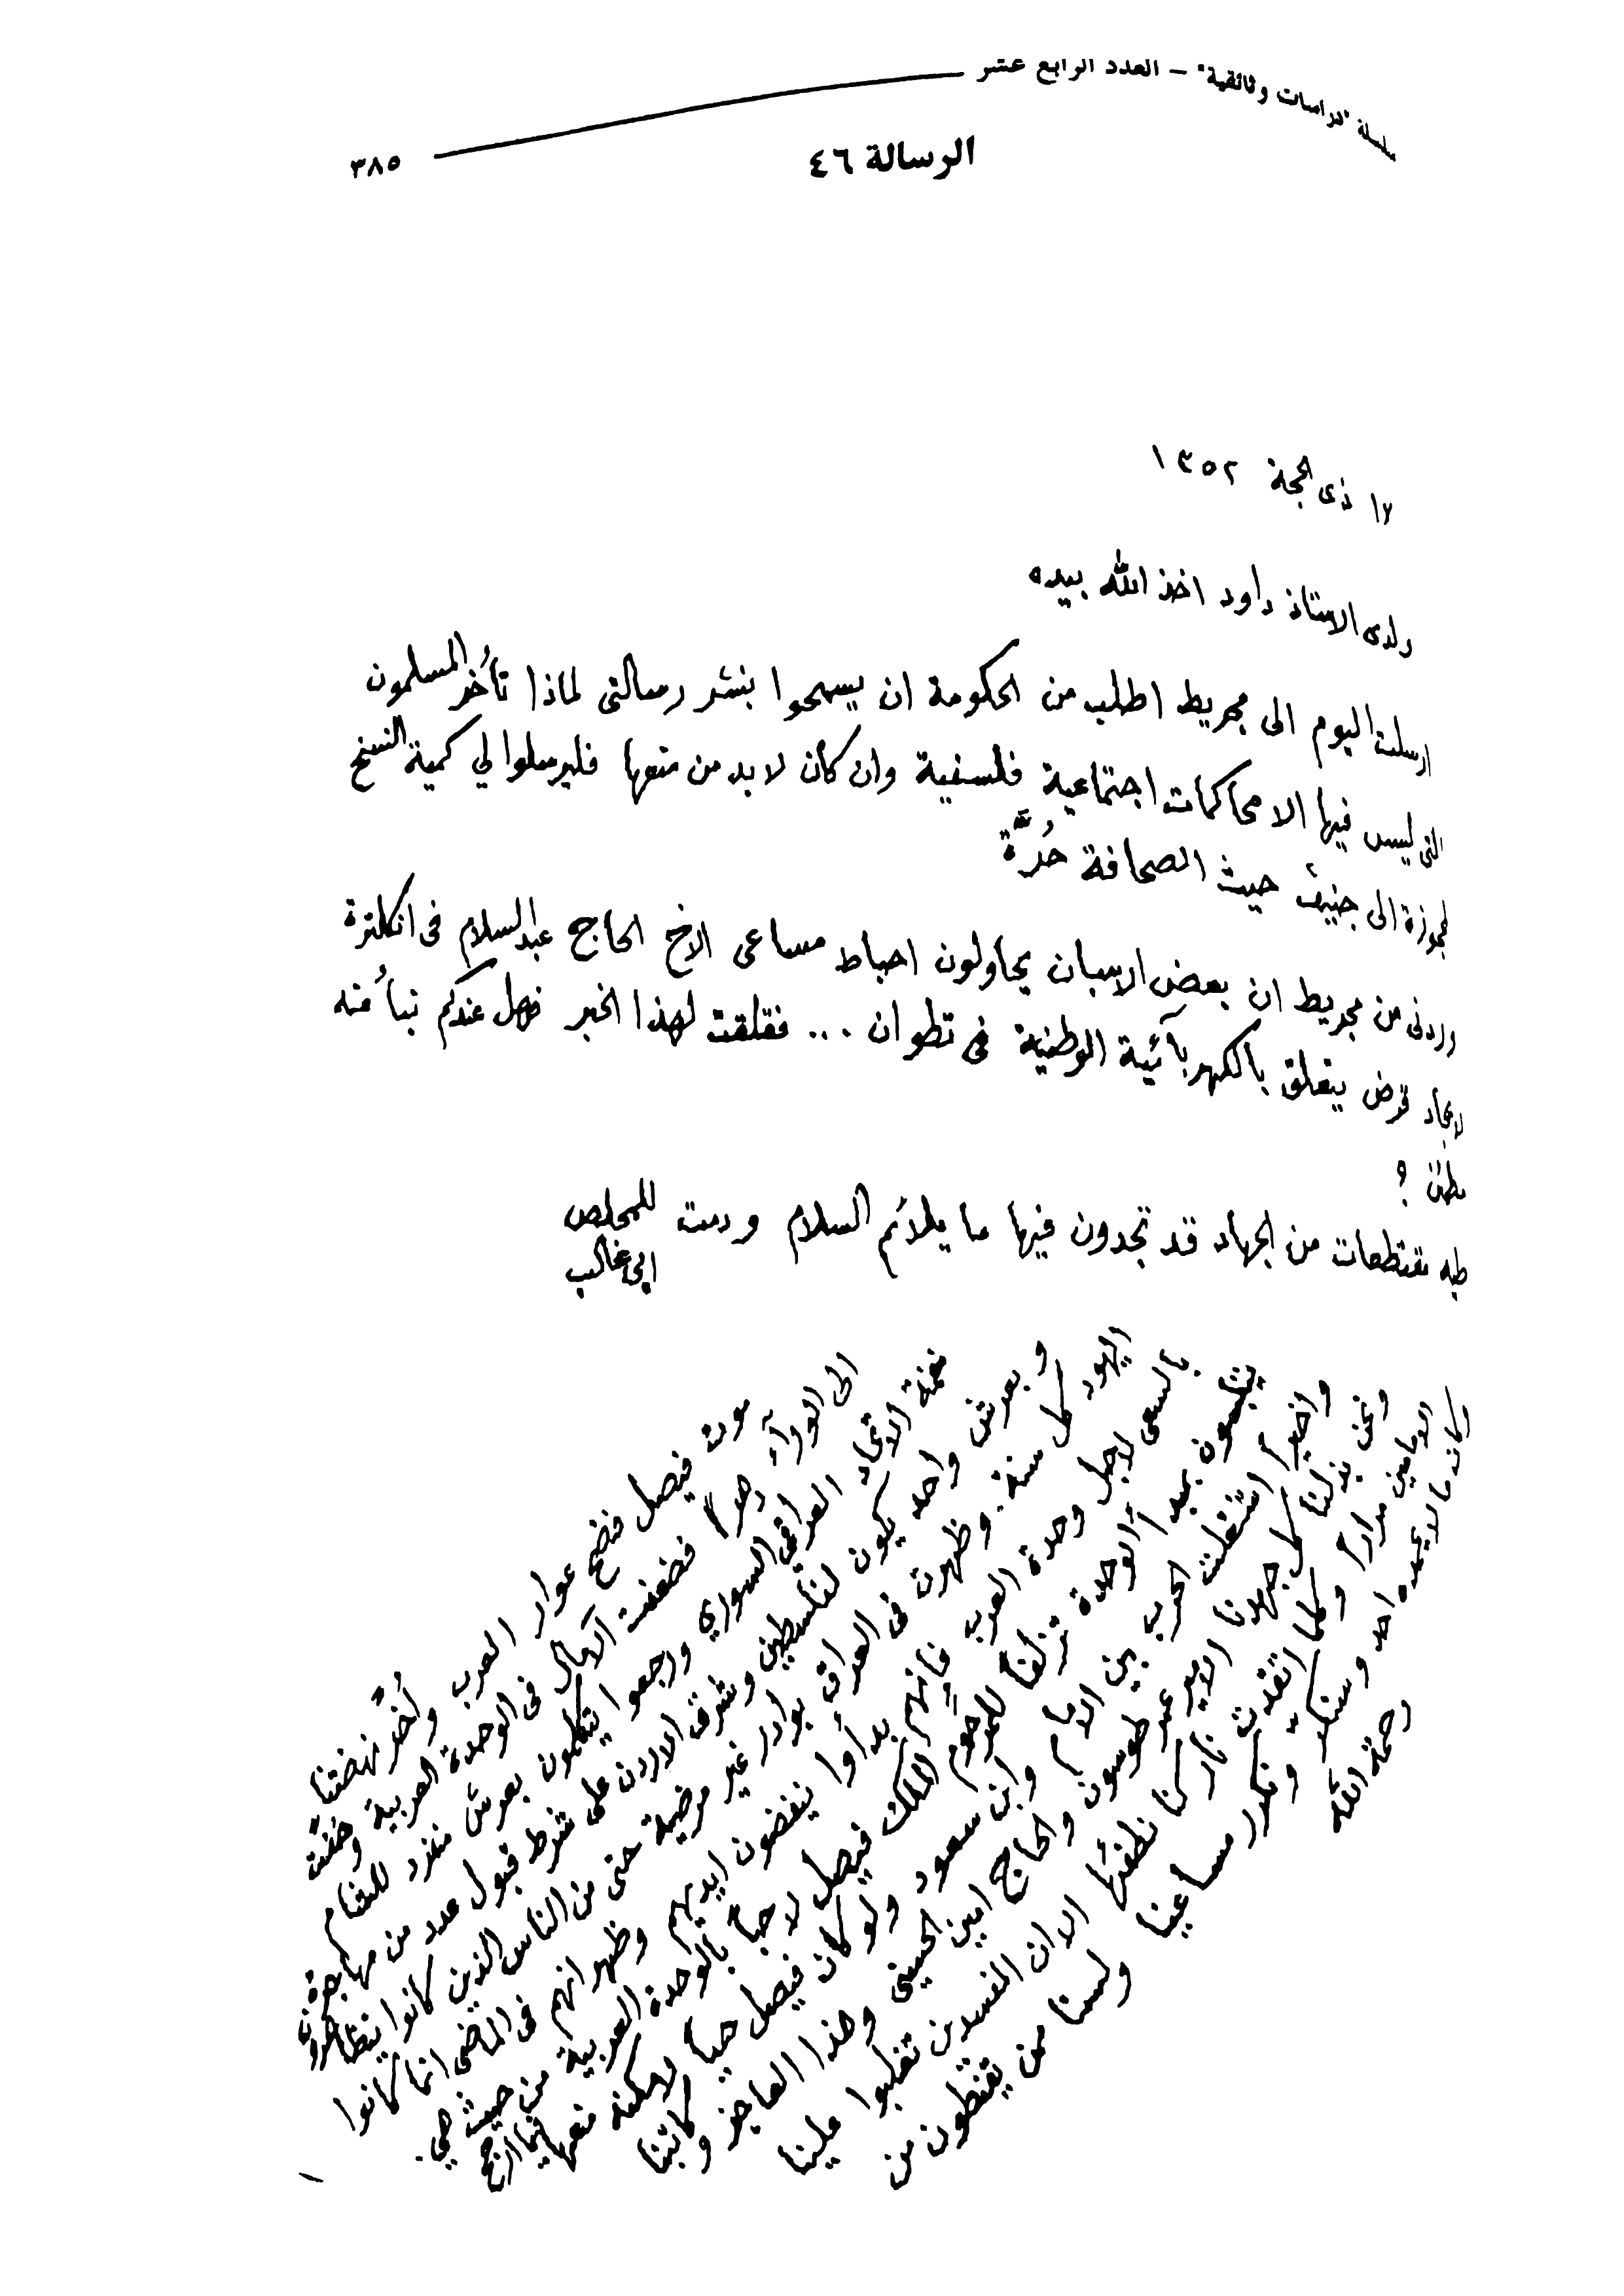 سلسلة "دراسات وثائقية" – العدد الرابع عشر
٣٨٥
الرسالة ٤٦
١٧ ذى الحجة ١٣٥٢
ولدى الاستاذ داود اخذ الله بيده
ارسلت اليوم الى مجريط اطلب من الحكومة ان يسمحوا بنشر رسالتى لماذا تأخر المسلمون
التى ليس فيها الا محاكمات اجتماعية فلسفية وان كان لا بد من منعها فليرسلوا لي كمية النسخ
المحجوزة الى جنيف حيث الصحافة حُرَّة
وردنى من مجريط ان بعض الاسبان يحاولون احباط مساعى الاخ الحاج عبد السلام فى انكلترة
لايجاد قرض يتعلق بالكهربآئية الوطنية فى تطوان ... فقلقت لهذا الخبر فهل عندكم نبأ منه
؟
طيه مقتطعات من الجهاد قد تجدون فيها ما يلائم السلام ودمت للمخلص
ابى غالب
موت فيصل فضح عوار العرب وأخّر نهضتنا
الى الورآء فضعفت الآمال فى الوحدة العربية وخفتت
نغمة الاتحاد العراقى السورى ورجعوا يتكلمون بعرش منفرد للشام
وبعرش واحد يكون لفلسطين وشرق الاردن على شرط قبول عدد من مهاجرة
اليهود كل سنة. وظهرت فى العراق بوادر غير مرضية حتى من الناس الذين كانوا يتظاهرون
بالسعى لاجل وحدة العرب فإنهم بدأوا ينفضون ايديهم وظهر انهم فى الماضى انما كانوا
بمبدأ الوحدة تزلفاً للمرحوم الملك فيصل لا حباً بالوحدة العربية من حيث هى.
واخيراً اشتعلت الحرب بين الامام وابن سعود ولو كان فيصل حياً لامكنه منعها فيما ارجح
ونحن بذلنا كل جهدنا الامير عمر طوسون والحاج امين الحسينى وهذا العاجز وكاتبنا
الامامين مراراً وكلما اتقدت نار كنا نطفئها الا ان المفسدين تغلبوا علينا
وكان ما لا يحمده احد وسنكرر مساعينا ولسنا ممن يقنطون من
رحمة الله